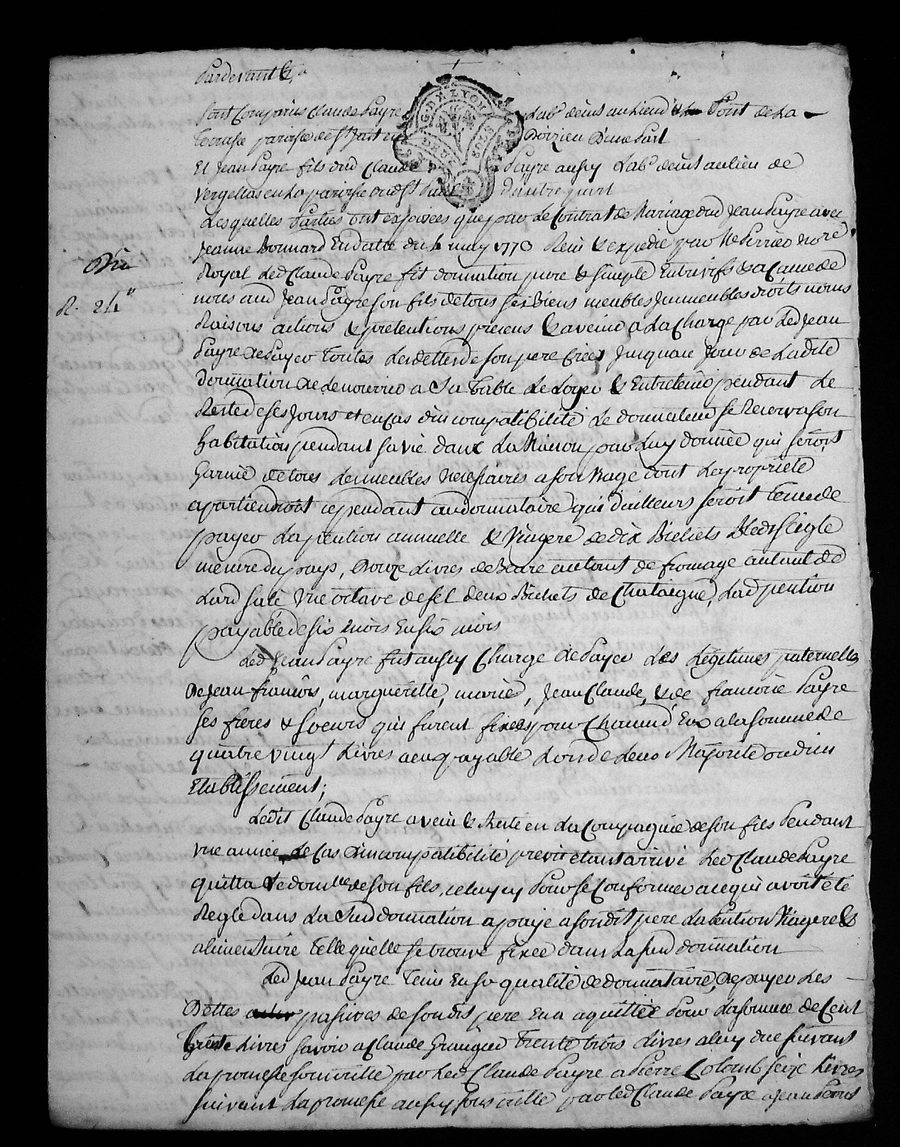 Pardevant &a
sont Comparus Claude Payre Labr demt au lieu du Pont de La
Terrasse parroisse de st Just en Doizieu D'une Part
Et Jean Payre fils dud Claude Payre aussy Labr demt au lieu de
Vergelas en La parroisse dud st Just D'autre part
Lesquelles Parties ont exposées que par le Contrat de Mariage dud Jean Payre avec
Jeanne Bonnard En datte du may 1773 Recu & expedié par Me notre
Royal Led Claude Payre fit donnation pure & simple Entrevifs & a Cause de
nous aud Jean Payre son fils de tous ses Biens meubles Immeubles droits noms
Raisons actions & pretentions presens & avenir a La Charge par Led Jean
Payre de Payer Toutes Les dettes de son pere Crées Jusqu'au Jour de Ladite
donnation de le nourrir a Sa Table Le Loger & Entretenir pendant Le
Reste de ses Jours et en cas d'incompatibilité Le donnateur se Reserva son
habitation pendant sa vie dans La Maison par Luy donnée qui seroit
Garnie de tous Les meubles necessaires a son usage dont La proprieté
apartiendroit cependant au donnataire qui d'ailleurs seroit Tenu de
payer La pention annuelle & Viagere de dix Bichets Bled seigle
mesure du pays, Douze Livres de Beure autant de fromage autant de
Lard salé Une octave de sel deux Bichets de Chataigne, Lad pention
payable de six mois En six mois
Led Jean Payre fut aussy Chargé de Payer Les Légitimes paternelles
De Jean francois, margueritte, marie, Jean Claude, & de francoise Payre
ses freres & soeurs qui furent fixées pour Chacun d'Eux a la somme de
quatre vingt Livres a eux payable Lors de Leur Majorité ou d'un
Etablissement;
Ledit Claude Payre a vecu & Resté en La Compagnie de son fils Pendant
une année Le Cas d'incompatibilité prevû étant arrivé Led Claude Payre
quitta Le domlle de son fils, celuy cy Pour se Conformer a ce qui avoit été
Reglé dans La Sud donnation a payé a son dit pere La pention Viagere &
alimentaire Telle quelle se trouve fixée dans La sud donnation
Led Jean Payre Tenu En sa qualité de donnataire, De payer Les
Dettes passives de son dit pere En a aquittée Pour La somme de Cent
trente Livres savoir a Claude Granger Trente trois Livres a luy due suivant
La promesse souscritte par Led Claude Payre a Pierre Colomb seize Livres
suivant La promesse aussy sous critte par led Claude Payre a Jean
R. 24